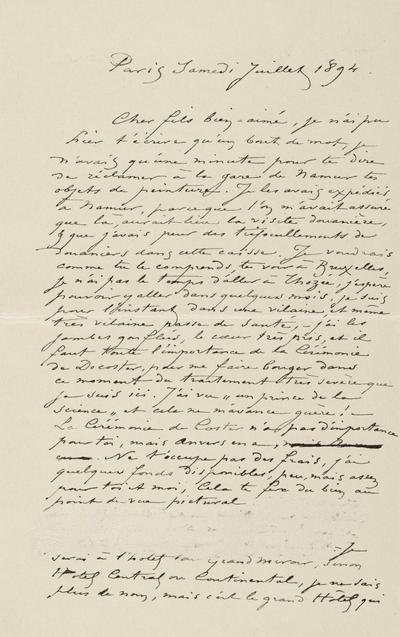 Paris Samedi Juillet 1894.
Cher fils bien-aimé, je n'ai pu
hier t'écrire qu'un bout de mot, je
n'avais qu'une minute pour te dire
de réclamer à la gare de Namur tes
objets de peinture. Je les avais expédiés
à Namur, parceque l'on m'avait assuré
que là, aurait lieu la visite douanière,
& que j'avais peur des tripouillements de
douaniers dans cette caisse. Je voudrais
comme tu le comprends, te voir à Bruxelles,
je n'ai pas le temps d'aller à Thozée, j'espère
pouvoir y aller dans quelques mois, je suis
pour l'instant dans une vilaine, et même
très vilaine passe de santé, – j'ai les
jambes gonflées, le cœur très pris, et il
faut toute l'importance de la Cérémonie
de Decoster, pour me faire bouger dans
ce moment du traitement très sévère que
je suis ici. J'ai vu „un prince de la
Science" et cela ne m'avance guère! –
La Cérémonie de Coster n'a pas d'importance
pour toi, mais Anvers en a,
Ne t'occupe pas des frais, j'ai
quelques fonds disponibles, peu, mais assez
pour toi & moi. Cela te fera du bien au
point de vue pictural
Je
serai à l'hotel du Grand miroir, sinon
Hôtel Central ou Continental, je ne sais
plus le nom, mais c'est le grand Hôtel qui